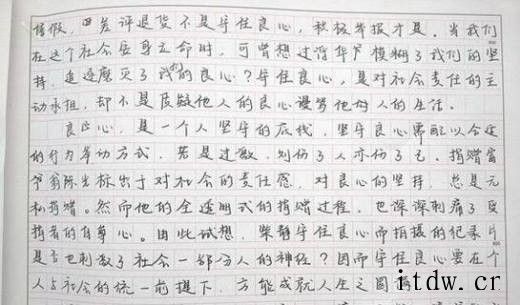 信假，四差评退货不是守住良心，积极举报才是。当我们
在这个社会安身立命时，可曾想过浮华模糊了我们的坚
持，追逐磨灭了我们的良心？守住良心，是对社会责任的主
动承担，却不是质疑他人的良心谩骂他人的生活。
良心，是一个人坚守的底线，坚守良心需配以合适
的行为举动方式，若是过激，划伤了人亦伤了己。捐赠富
翁陈光标出于对社会的责任感，对良心的坚持，总是无
私捐赠。然而他的全透明式的捐赠过程，也深深刺痛了受
捐者的自尊心。由此试想，柴静守住良心而拍摄的纪录片
是否也刺激了社会一部分人的神经？因而守住良心要在个
人与社会的统一前提下，方能成就人生之圆
itdw.cr